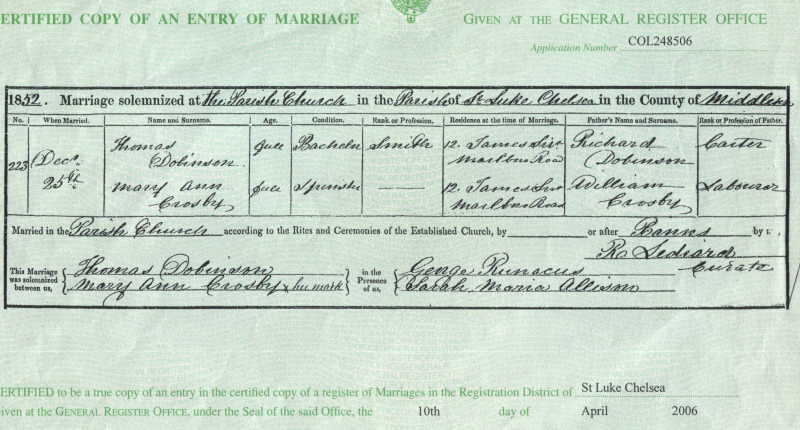 ERTIFIED COPY OF AN ENTRY OF MARRIAGE
GIVEN AT THE GENERAL REGISTER OFFICE
Application Number COL248506
1852. Marriage solemnized at the Parish Church in the Parish of St. Luke Chelsea in the County of Middlesex
No. When Married. Name and Surname. Age. Condition. Rank or Profession. Residence at the time of Marriage. Father's Name and Surname. Rank or Profession of Father.
223 Decr 25th Thomas Dobinson full Bachelor Smith 12. James Marlbro Road Richard Dobinson Carter
Mary Ann Crosby full Spinster — 12. James Marlbro Road William Crosby Labourer
Married in the Parish Church according to the Rites and Ceremonies of the Established Church, by or after Banns by
R Sediard
Curate
This Marriage was solemnized between us, Thomas Dobinson Mary Ann Crosby x her mark in the Presence of us, George Runacus Sarah Maria Allison
ERTIFIED to be a true copy of an entry in the certified copy of a register of Marriages in the Registration District of St Luke Chelsea
iven at the GENERAL REGISTER OFFICE, under the Seal of the said Office, the 10th day of April 2006